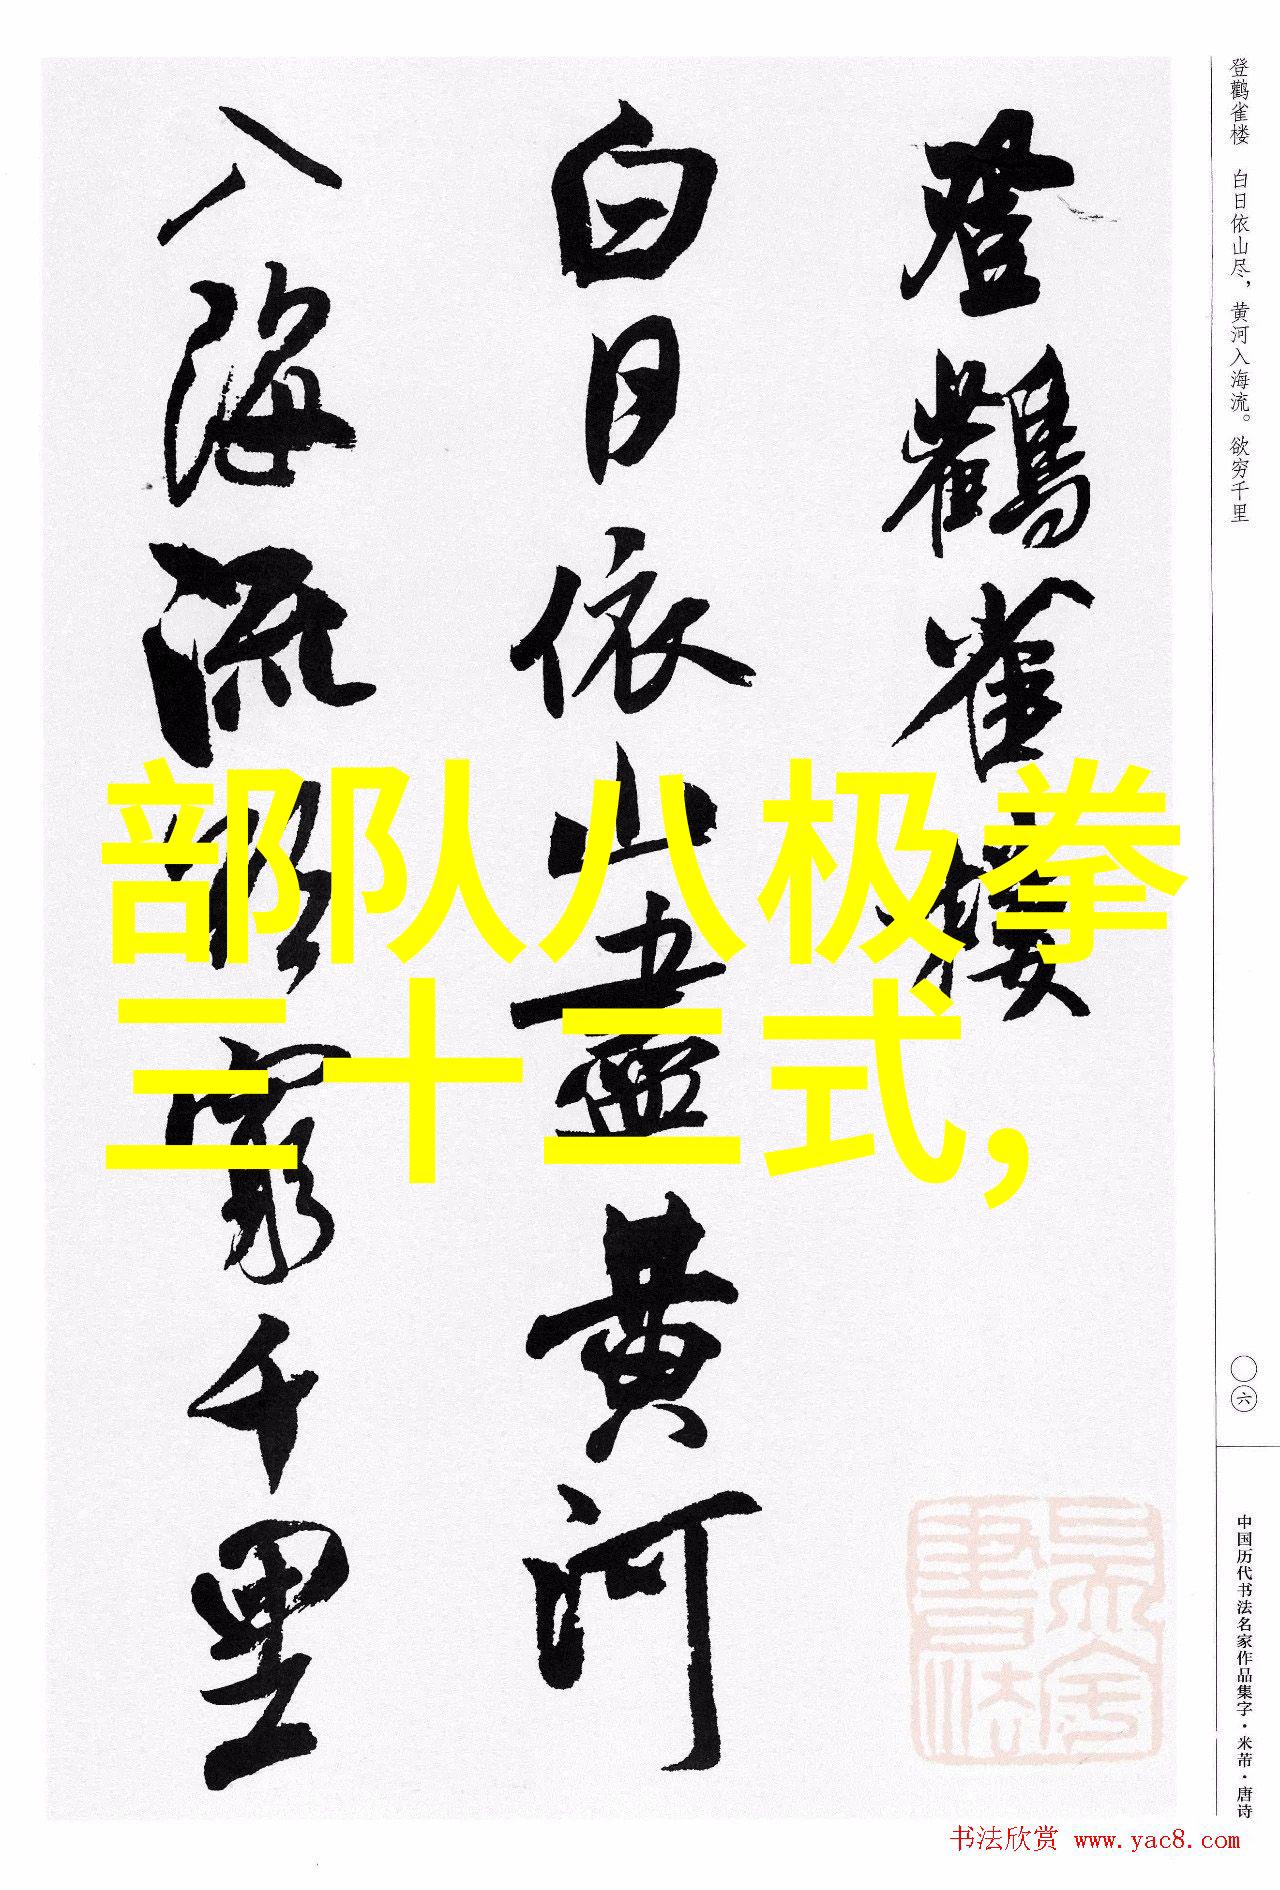 登鹳雀楼 白日依山尽，黄河入海流。欲穷千里
登鸛雀樓
白日依山盡黃河
入海流欲窮千里
部队八极拳
三十二式,
〇六
中国历代书法名家作品集字·米芾·唐诗
书法欣赏 www.yac8.com